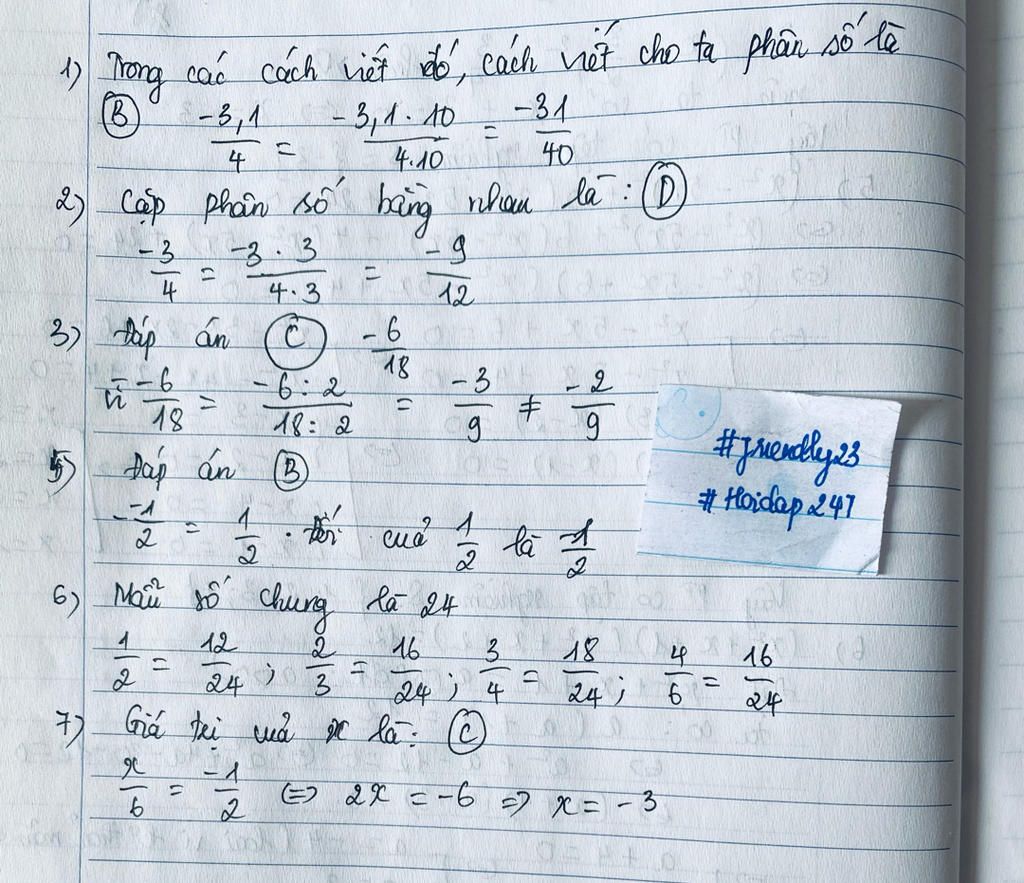 1) Trong các cách viết đó, cách viết cho ta phân số là
B -3,1/4 = -3,1 . 10/4.10 = -31/40
2) Cặp phân số bằng nhau là : D
-3/4 = -3 . 3/4 . 3 = -9/12
3) Đáp án C -6/18
vì -6/18 = -6 : 2/18 : 2 = -3/9 ≠ -2/9
5) Đáp án B
- -1/2 = 1/2 . đối cuả 1/2 là -1/2
6) Mẫu số chung là 24
1/2 = 12/24 ; 2/3 = 16/24 ; 3/4 = 18/24 ; 4/6 = 16/24
7) Giá trị cuả x là: C
x/6 = -1/2 <=> 2x = -6 => x = -3
#friendly23
#Hoidap247